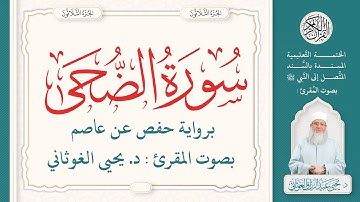 الجزء الثلاثون
الجزء الثلاثون
سورة الضحى
برواية حفص عن عاصم
بصوت المقرئ : د. يحيى الغوثاني
القرآن الكريم
الختمة التعليمية
المسندة بالسند
المتصل إلى النبي ﷺ
بصوت المقرئ :
د. يحيى عبد الرزاق الغوثاني